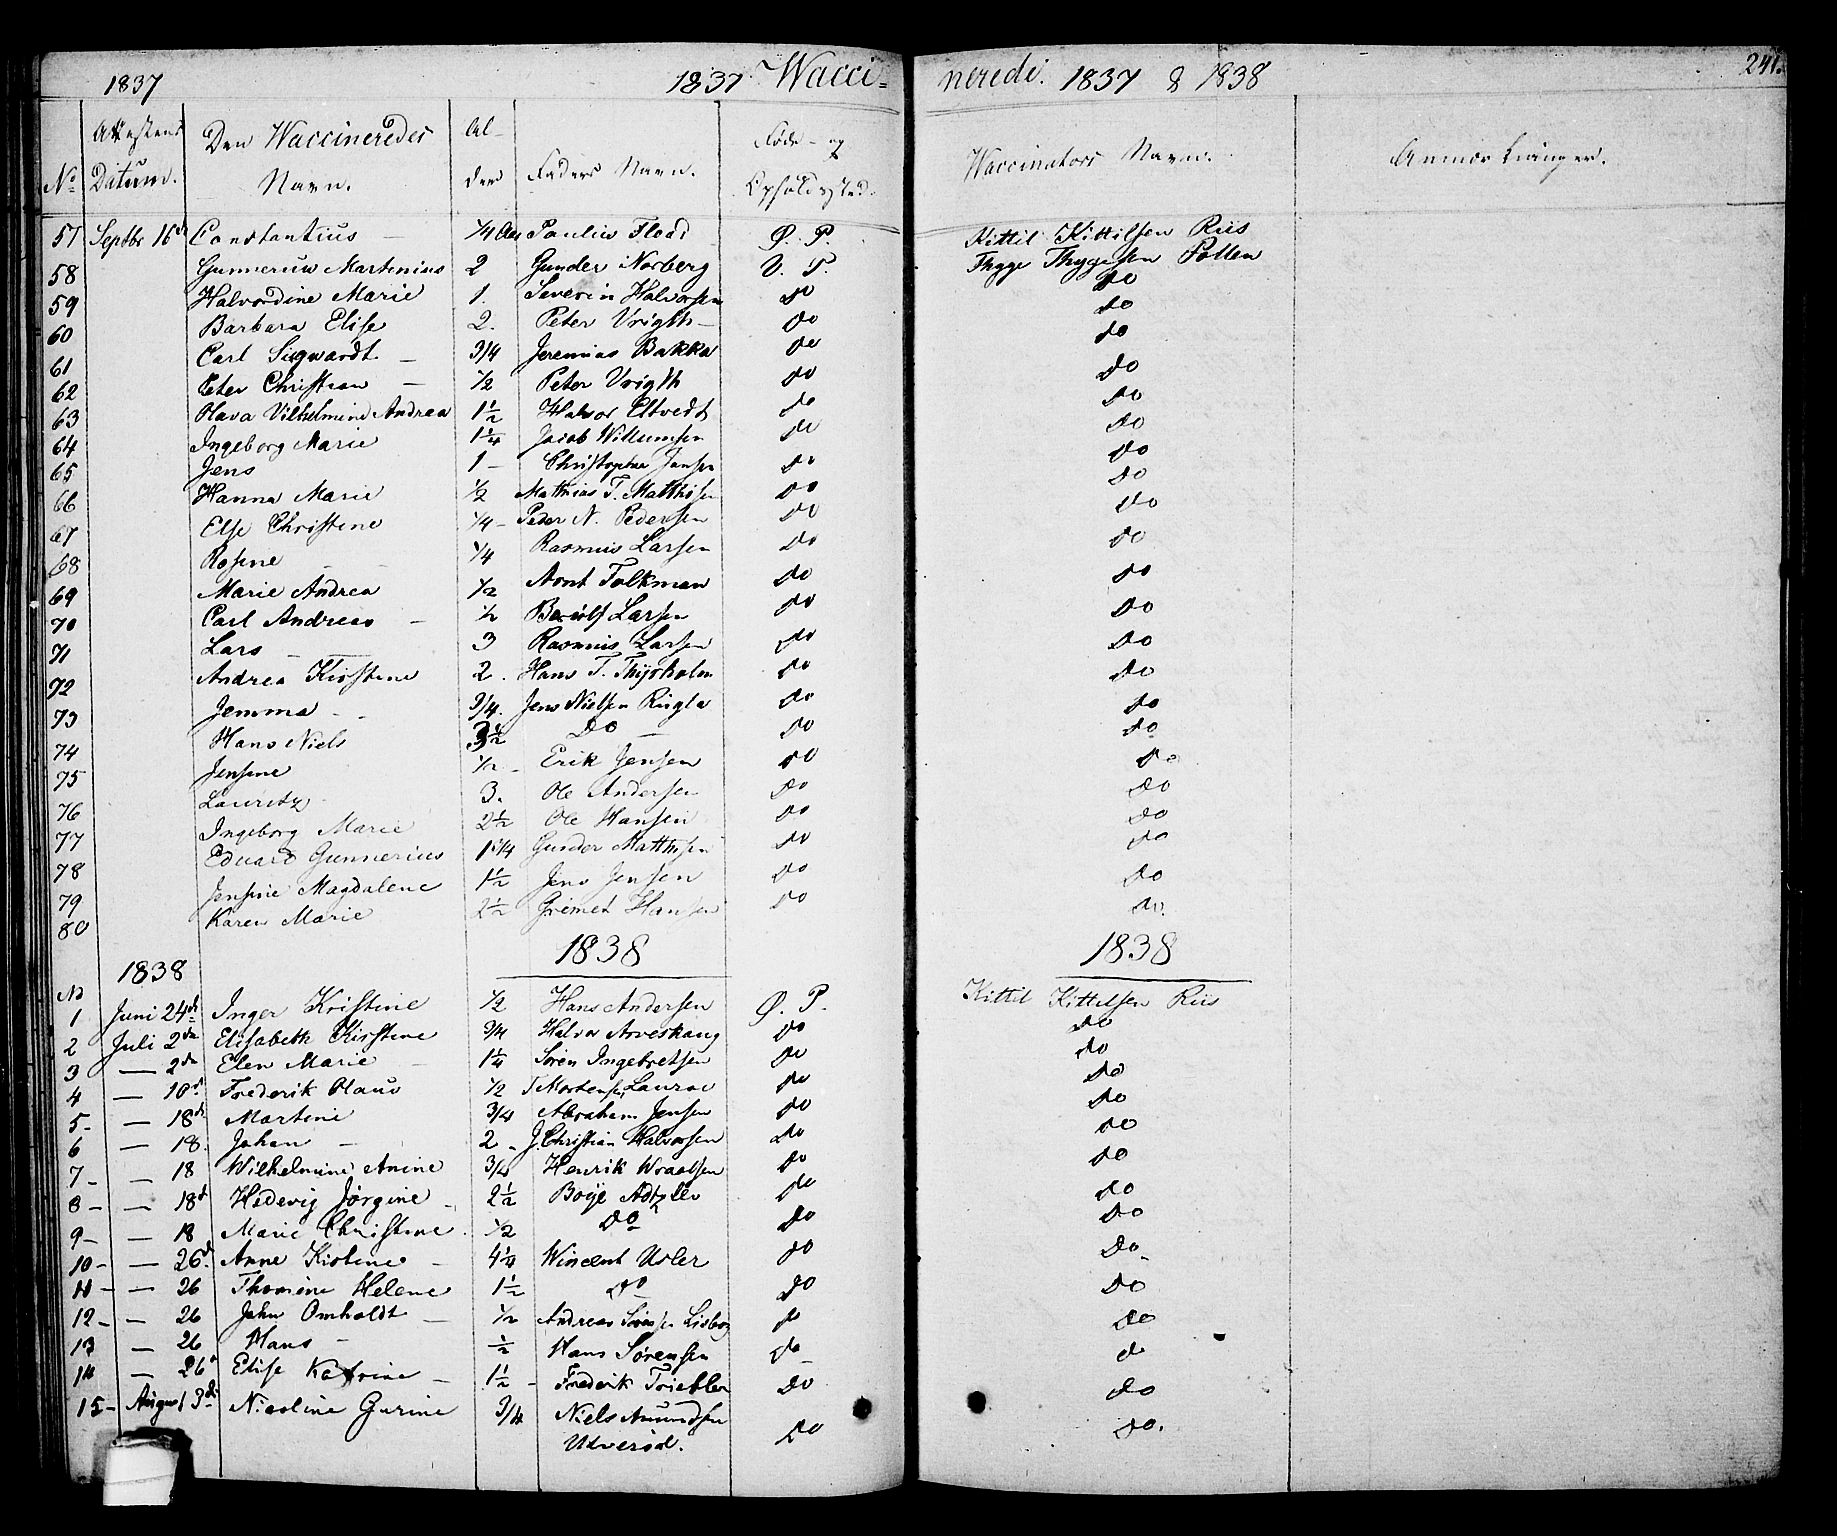 1837 1837 Wacci- nerede. 1837 & 1838 241.
No Attestens Datum. Den Waccineredes Navn. Al- der Faders Navn. Føde- og Opholdssted. Waccinators Navn. Anmærkninger.
57 Septbr 16d Constantius — 1/4 Aar Paulus Flood Ø. P. Kittil Kittilsen Riis
58 Gunnerius Martenius 2 Gunder Norberg V. P. Thyge Thygesen Polten
59 Halvordine Marie 1. Severin Halvorsen do do
60 Barbara Elise 2. Peter Vrigth — do do
61 Carl Sigwardt — 3/4 Jeremias Bakka do do
62 Peter Christian — 1/2 Peter Vrigth do do
63 Olava Vilhelmine Andrea 1 1/2 Halvor Eltvedt do do
64 Ingeborg Marie 1 1/4 Jacob Willumsen do do
65 Jens 1 — Christopher Jensen do do
66 Hanna Marie 1/2 Mathias T. Matthisen do do
67 Else Christine 1/4 — Peder N. Pedersen do do
68 Rosine — 1/4 Rasmus Larsen do do
69 Marie Andrea 1/2 Arnt Talkman do do
70 Carl Andreas — 1/2 Larsen do do
71 Lars — 3 Rasmus Larsen do do
72 Andrea Kirstine 2. Hans T. Thysholm do do
73 Jemma — 3/4. Jens Nielsen Ringla do do
74 Hans Niels 3 1/2 Do — do do
75 Jensine 1/2 — Erik Jensen do do
76 Lauritz 3. Ole Andersen do do
77 Ingeborg Marie 2 1/2 Ole Hansen do do
78 Eduard Gunnerius 1 1/4 Gunder Matthisen do do
79 Jensine Magdalene 1 1/2 Jens Jensen do do
80 Karen Marie 2 1/2 Hansen do do.
1838 1838 1838
No
1 Juni 24de Inger Kristine 1/2 Hans Andersen Ø. P. Kittil Kittelsen Riis
2 Juli 2den Elisabeth Kirstine 3/4 Halvor Arveskaug do do
3 — 2den Elen Marie — 1 1/4 Søren Ingebretsen do do
4 — 10d. Frederik Olaus 1/2 T Mortensen, Laurac do do
5- — 18de Martine 3/4 Abraham Jensen do do
6 — 18. Johan — 2 — J. Christian Halvorsen do do
7- — 18 Wilhelmine Anine 3/4 Henrik Wraalsen do do
8- — 18d Hedevig Jørgine — 2 1/2 Boye do do
9- — 18 Marie Christine. 1/2 Do do do
10- — 26d. Anne Kistine — 4 1/4 Wincent Usler do Do-
11- — 26 Thomine Helene 1 1/2 Do do do
12- — 26 John Omholdt — 1/2 Andreas Sørensen do do
13 — 26 Hans — 1/2 Hans Sørensen do — do
14 — 26d Elise Katrine — 1 1/2 — Frederik Triebler do do
15- August 3di Nicoline Gurine 3/4 Niels Amundsen
do do.